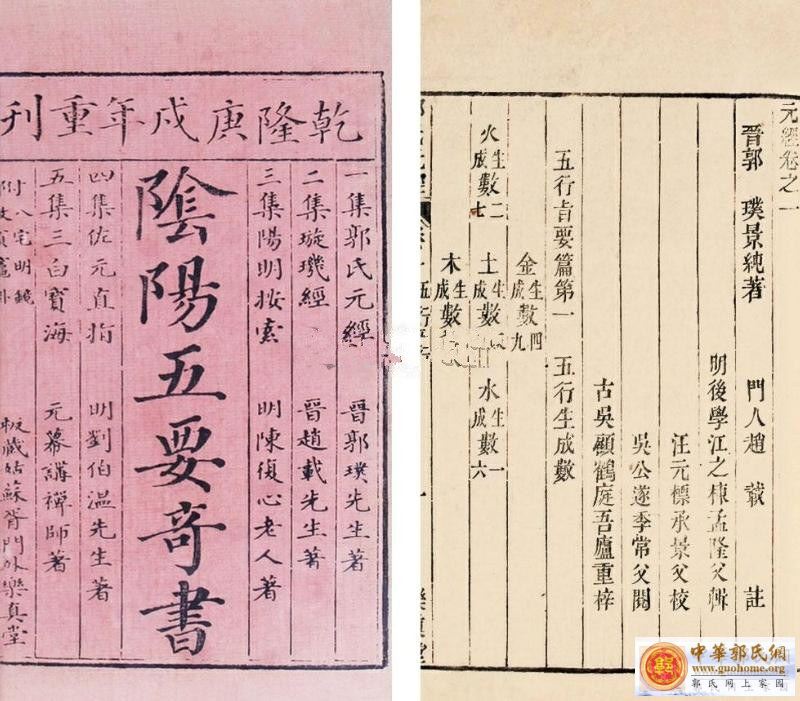 乾隆庚戌年重刊
一集郭氏元經 晉郭璞先生著
二集璇璣經 晉趙載先生著
三集陽明按索 明陳復心老人著
陰陽五要奇書
四集佐元直指 明劉伯溫先生著
五集三白寶海 元幕講禪師著
附八宅明鏡
板藏姑蘇胥門外樂真堂
元經卷之一
晉郭 璞景純著 門人趙 載 註
明後學江之棟孟隆父輯
汪元標承景父校
吳公遂季常父閱
古吳顧鶴庭吾廬重梓
五行旨要篇第一 五行生成數
金生數四成數九
火生數二成數七 土生成數 水生數一成數六
木生成數
中華郭氏網
www.guohome.org
郭氏网上家园